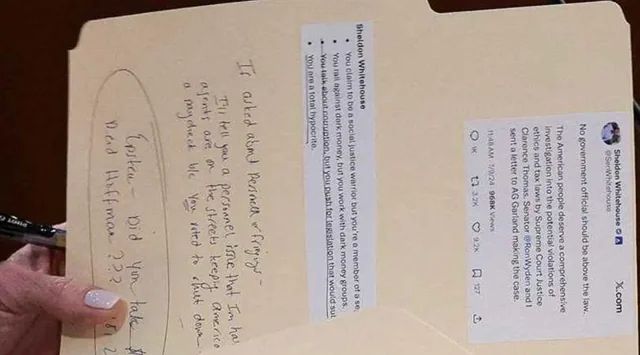 Sheldon Whitehouse X.com
@SenWhitehouse
No government official should be above the law.
The American people deserve a comprehensive
investigation into the potential violations of
ethics and tax laws by Supreme Court Justice
Clarence Thomas. Senator @RonWyden and I
sent a letter to AG Garland making the case.
11:48 AM · 7/9/24 968K Views
1K 2.2K 9.2K 127
Sheldon Whitehouse
• You claim to be a social justice warrior but you're a member of a se
• You rail against dark money, but you work with dark money groups.
• You talk about corruption, but you push for legislation that would sub
• You are a total hypocrite.
If asked about
I'll tell you a personnel issue that I'm ha
agents are on the streets keeping America
a paycheck b/c you voted to shut down
Epstein - Did you take $
Reid Hoffman ???